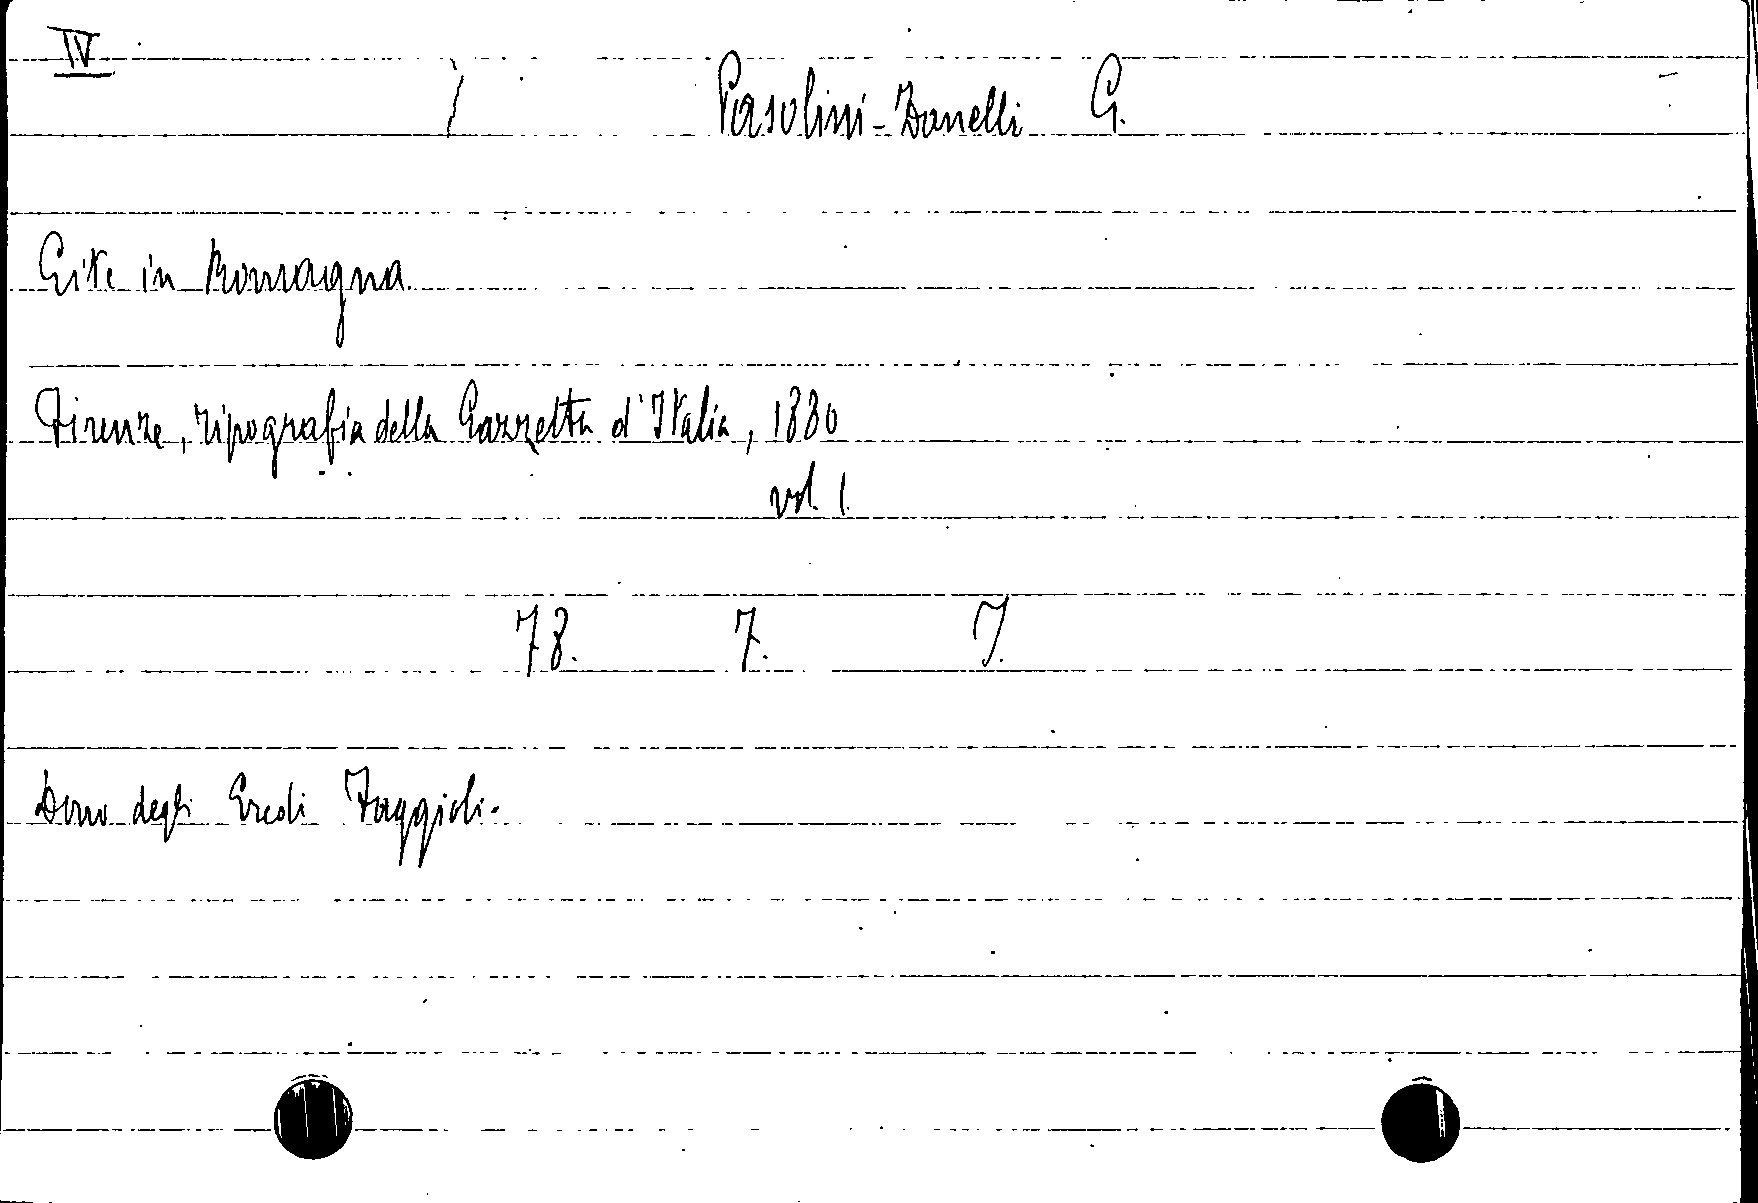 IV
Pasolini-Zanelli G.
Gite in Romagna.
Firenze, tipografia della Gazzetta d'Italia, 1880
vol. 1.
78. 7. 7.
Dono degli Eredi Faggioli.